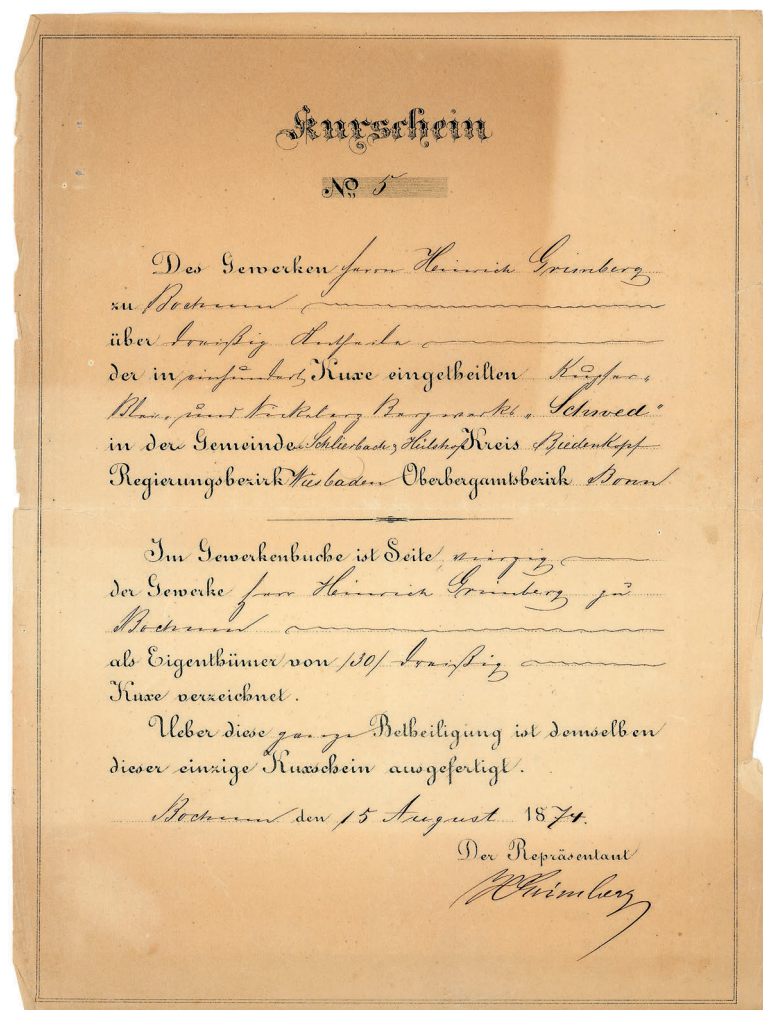 Kuxschein
No 5
Des Gewerken Herrn Heinrich Grimberg
zu Bochum
über dreißig Antheile
der in einhundert Kuxe eingetheilten Kupfer-
Blei- und Nickelerz Bergwerks "Schwed"
in der Gemeinde Schlierbach & Hülshof Kreis Biedenkopf
Regierungsbezirk Wiesbaden Oberbergamtsbezirk Bonn
Im Gewerkenbuche ist Seite vierzig
der Gewerke Herr Heinrich Grimberg zu
Bochum
als Eigenthümer von /30/ dreißig
Kuxe verzeichnet.
Ueber diese ganze Betheiligung ist demselben
dieser einzige Kuxschein ausgefertigt.
Bochum den 15 August 1874.
Der Repräsentant
HGrimberg